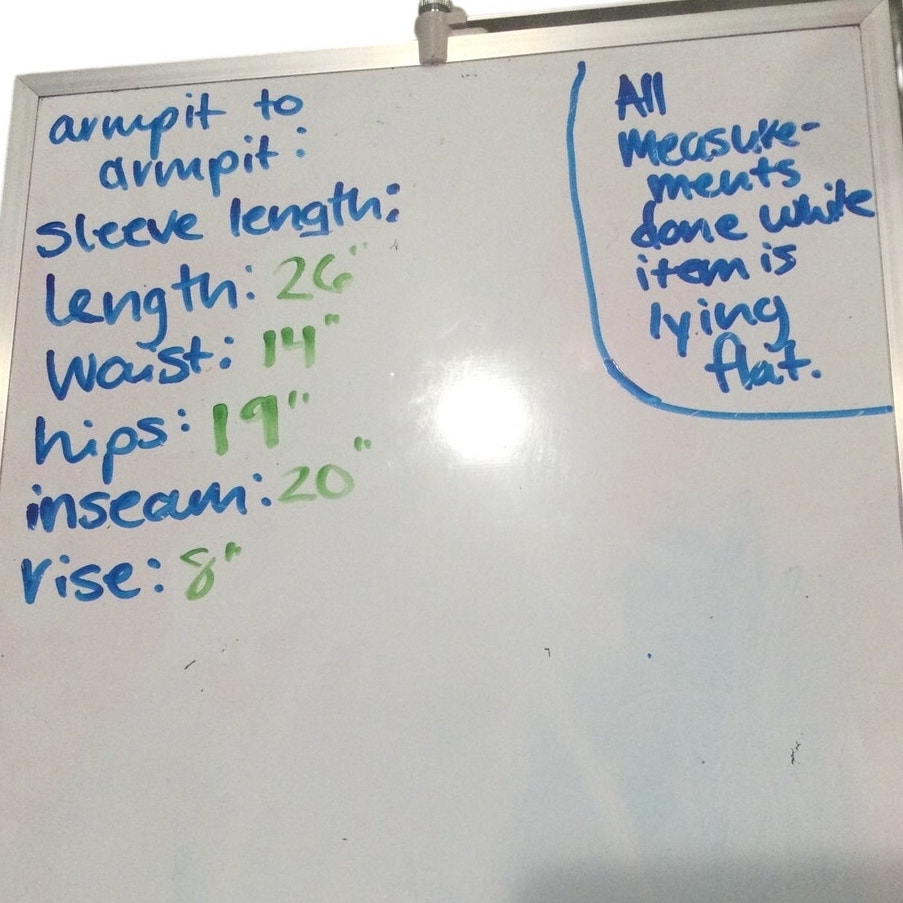 armpit to
armpit:
sleeve length:
length: 26"
waist: 14"
hips: 19"
inseam: 20"
rise: 8"
All
measure-
ments
done while
item is
lying
flat.